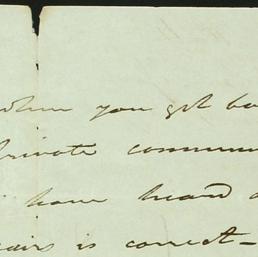 when you get ba
private commun
have heard a
airs is correct-